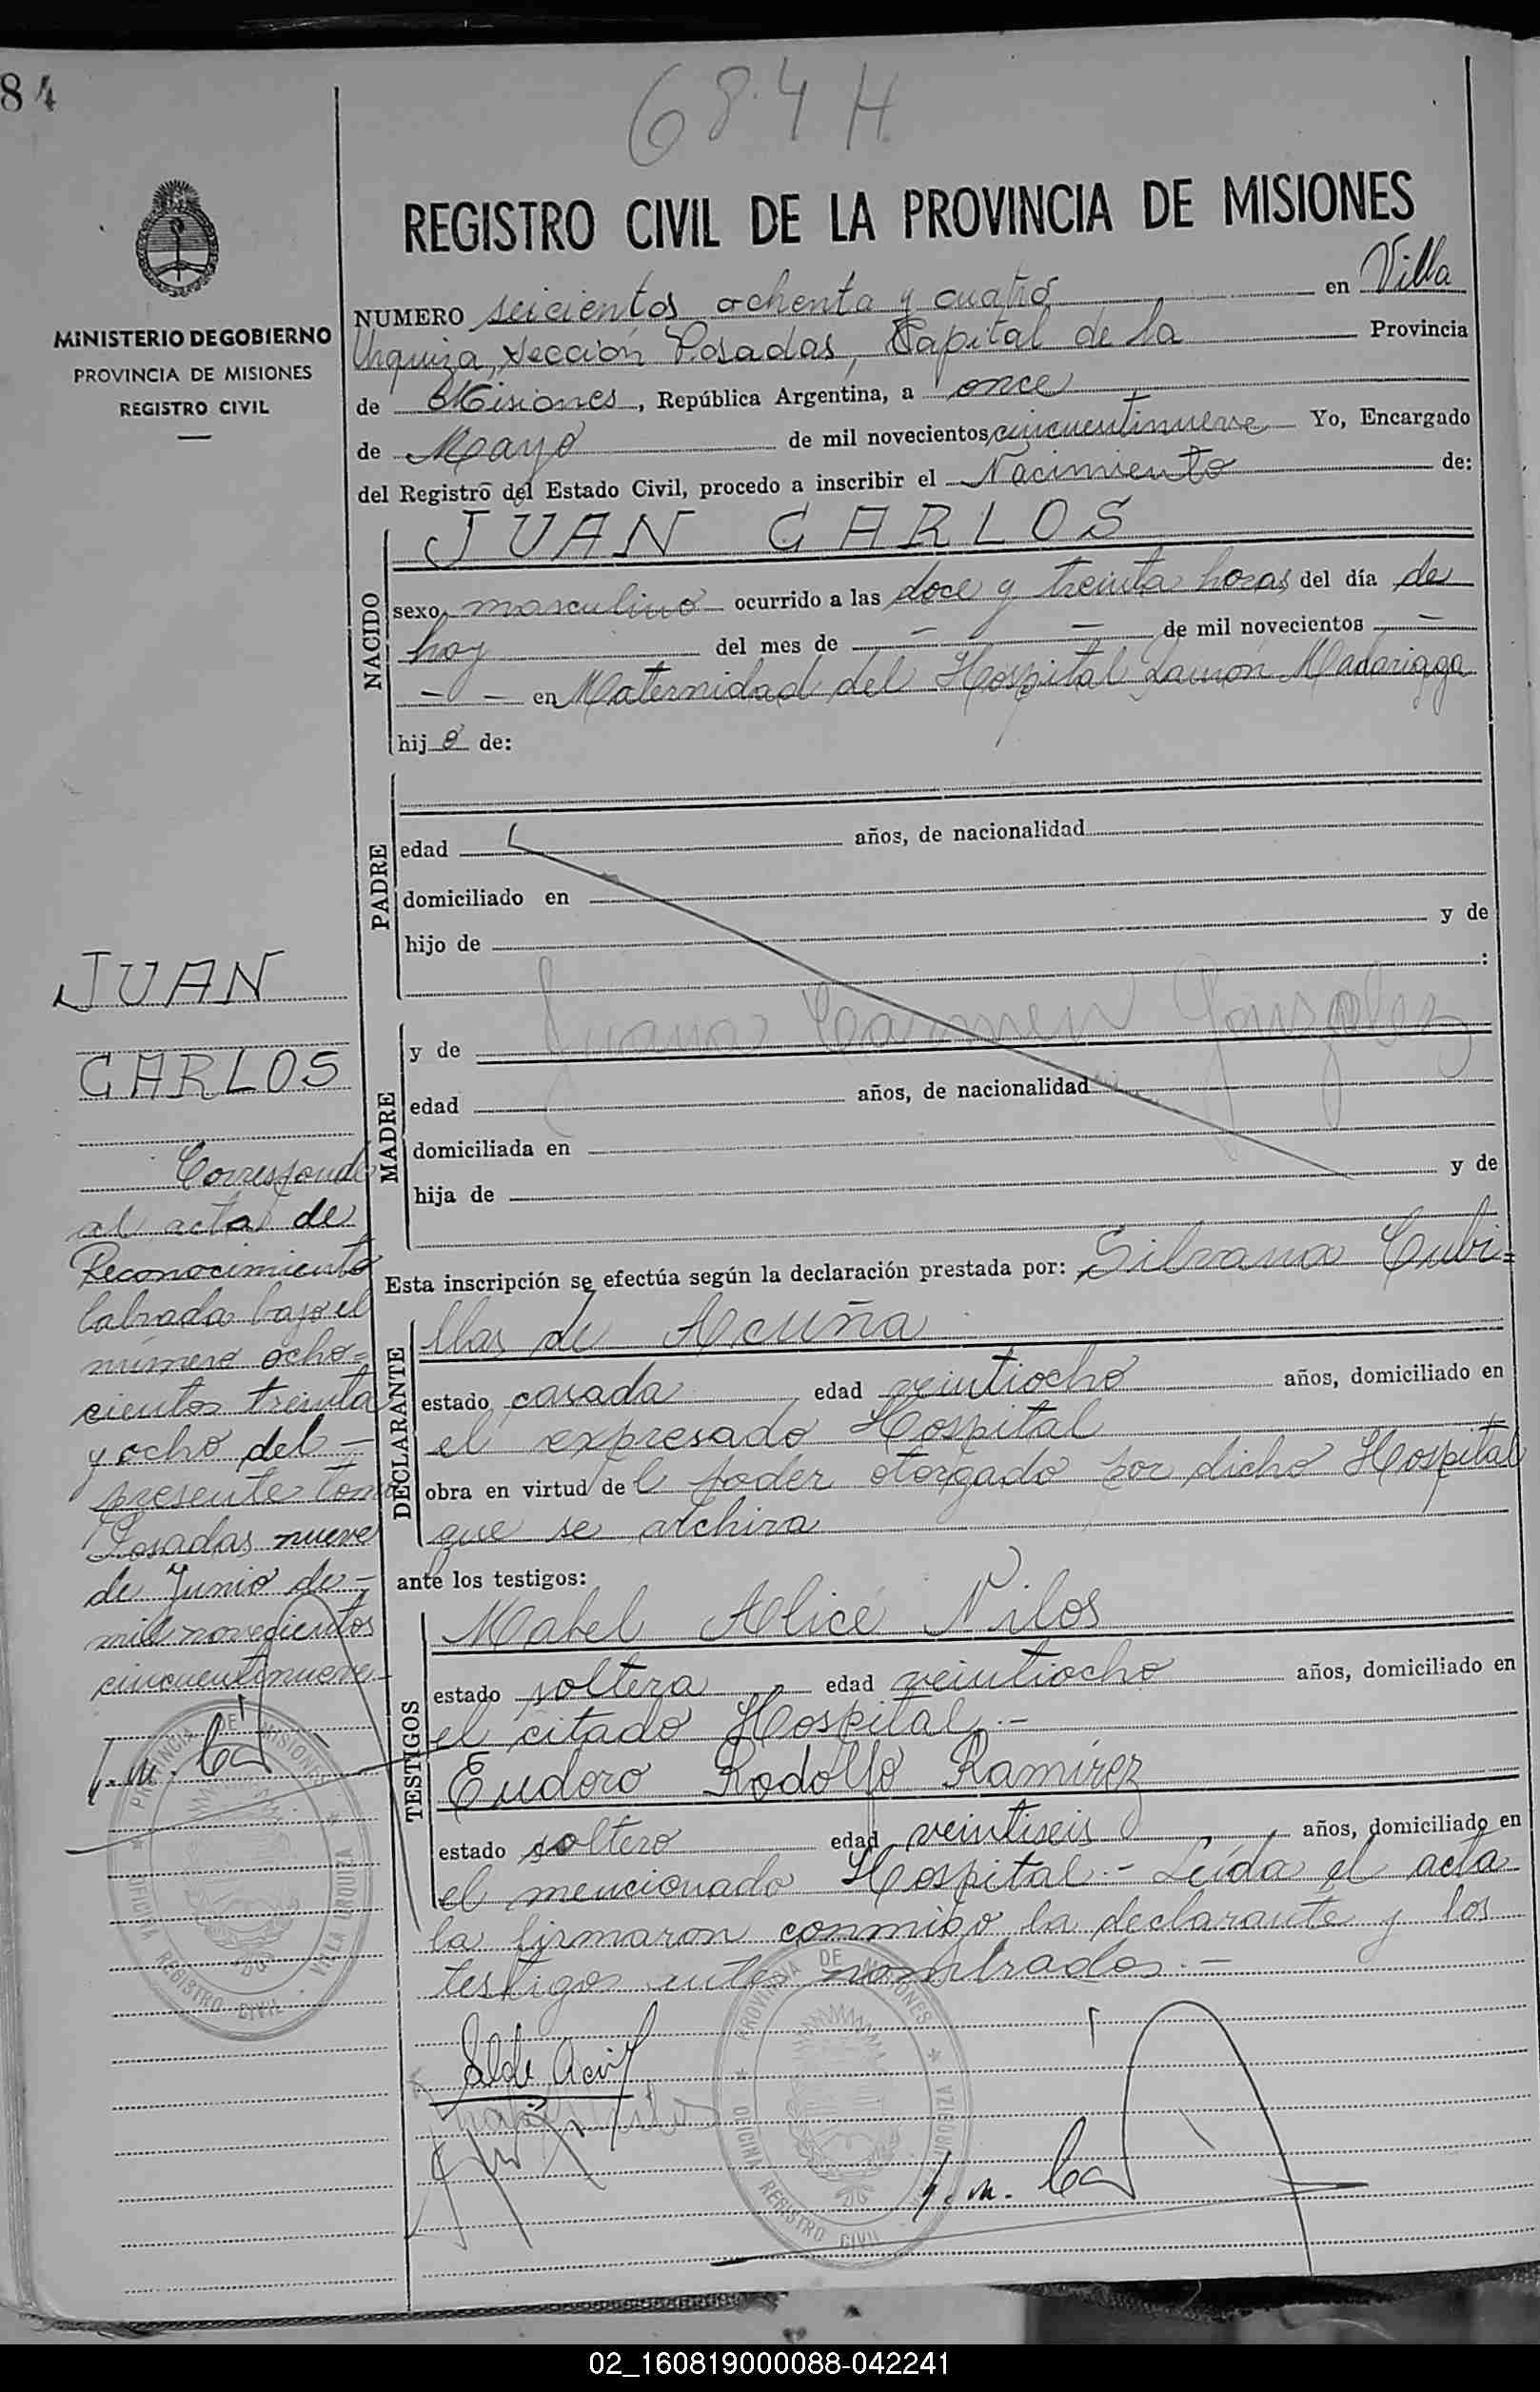 84
684 H
MINISTERIO DE GOBIERNO
PROVINCIA DE MISIONES
REGISTRO CIVIL
REGISTRO CIVIL DE LA PROVINCIA DE MISIONES
NUMERO seicientos ochenta y cuatro en Villa
Urquiza, sección Posadas, Capital de la Provincia
de Misiones, República Argentina, a once
de Mayo de mil novecientos cincuentinueve Yo, Encargado
del Registro del Estado Civil, procedo a inscribir el Nacimiento de:
NACIDO
JUAN CARLOS
sexo masculino ocurrido a las doce y treinta horas del día de
hoy del mes de — — de mil novecientos —
— — en Maternidad del Hospital Ramón Madariaga
hij o de:
PADRE
edad años, de nacionalidad
domiciliado en
hijo de y de
:
Juana Carmen Gonzalez
MADRE
y de
edad años, de nacionalidad
domiciliada en
hija de y de
Esta inscripción se efectúa según la declaración prestada por: Silvana Cubi=
DECLARANTE
llas de Acuña
estado casada edad veintiocho años, domiciliado en
el expresado Hospital
obra en virtud de l poder otorgado por dicho Hospital
que se archiva
ante los testigos:
TESTIGOS
Mabel Alice Nilos
estado soltera edad veintiocho años, domiciliado en
el citado Hospital.-
Eudoro Rodolfo Ramírez
estado soltero edad veintiseis años, domiciliado en
el mencionado Hospital.- Leída el acta
la firmaron conmigo la declarante y los
testigos antes nombrados.-
JUAN
CARLOS
Corresponde
al acta de
Reconocimiento
labrada bajo el
número ocho=
cientos treinta
y ocho del —
presente tomo
Posadas nueve
de Junio de —
mil novecientos
cincuentinueve.-
PROVINCIA DE MISIONES
OFICINA REGISTRO CIVIL · VILLA URQUIZA
PROVINCIA DE MISIONES
OFICINA REGISTRO CIVIL URQUIZA
02_160819000088-042241